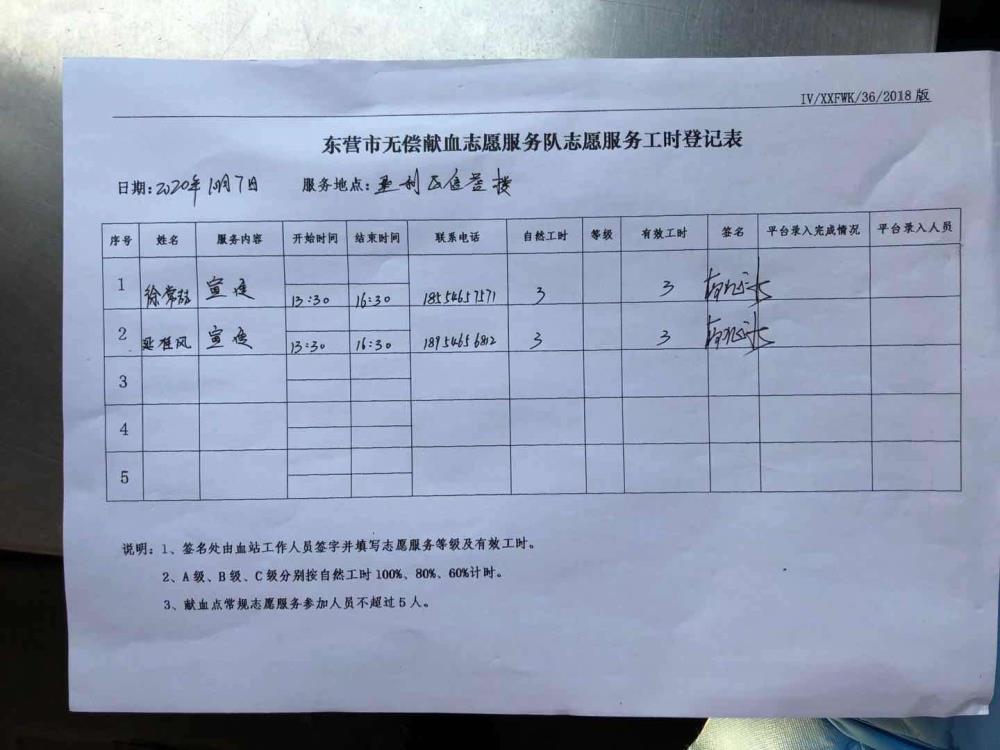 IV/XXFWK/36/2018 版
东营市无偿献血志愿服务队志愿服务工时登记表
日期:2020年10月7日 服务地点:
序号 姓名 服务内容 开始时间 结束时间 联系电话 自然工时 等级 有效工时 签名 平台录入完成情况 平台录入人员
1 宣传 13:30 16:30 18554657571 3 3
2 宣传 13:30 16:30 18954656812 3 3
3
4
5
说明: 1、签名处由血站工作人员签字并填写志愿服务等级及有效工时。
2、A 级、B 级、C 级分别按自然工时 100%、80%、60%计时。
3、献血点常规志愿服务参加人员不超过 5 人。